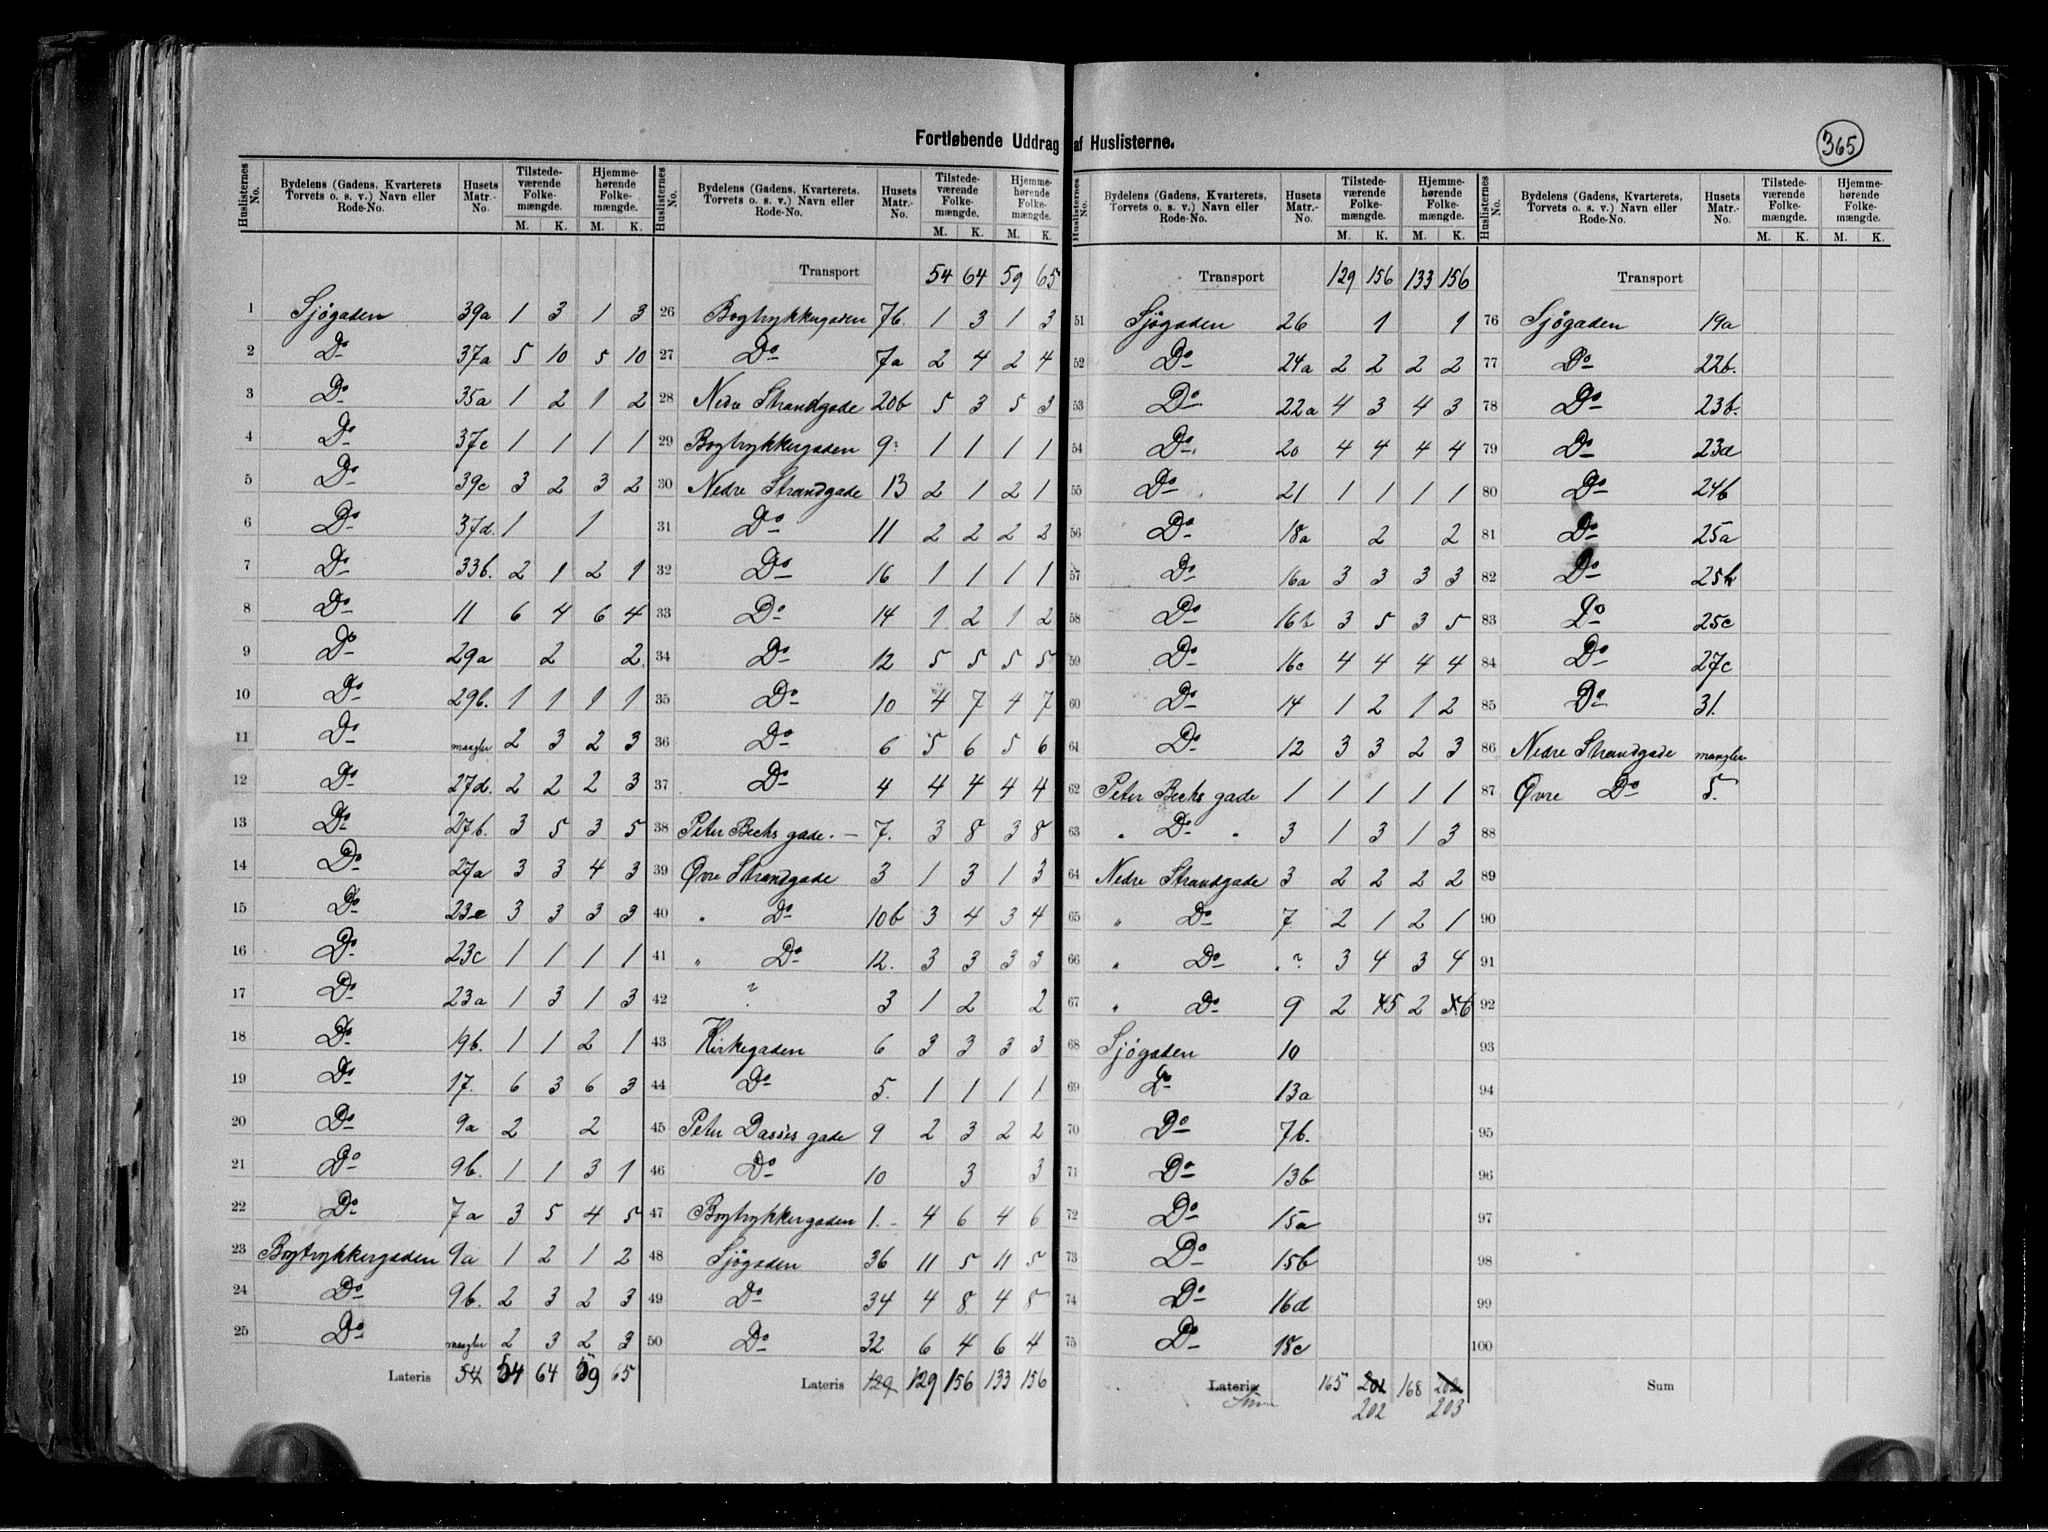 Fortløbende Uddrag af Huslisterne.
365
Huslisternes No. | Bydelens (Gadens, Kvarterets Torvets o. s. v.) Navn eller Rode-No. | Husets Matr.-No. | Tilstedeværende Folkemængde. M. K. | Hjemmehørende Folkemængde. M. K.
1 Sjøgaden 39a 1 3 1 3
2 Do 37a 5 10 5 10
3 Do 35a 1 2 1 2
4 Do 37c 1 1 1 1
5 Do 39c 3 2 3 2
6 Do 37d. 1 1
7 Do 33b. 2 1 2 1
8 Do 11 6 4 6 4
9 Do 29a 2 2
10 Do 29b. 1 1 1 1
11 Do mangler 2 3 2 3
12 Do 27d. 2 2 2 3
13 Do 27b. 3 5 3 5
14 Do 27a 3 3 4 3
15 Do 23e 3 3 3 3
16 Do 23c 1 1 1 1
17 Do 23a 1 3 1 3
18 Do 19b. 1 1 2 1
19 Do 17. 6 3 6 3
20 Do 9a 2 2
21 Do 9b. 1 1 3 1
22 Do 7a 3 5 4 5
23 Bogtrykkergaden 9a 1 2 1 2
24 Do 9b. 2 3 2 3
25 Do mangler 2 3 2 3
Lateris 54 54 64 59 65
Huslisternes No. | Bydelens (Gadens, Kvarterets, Torvets o. s. v.) Navn eller Rode-No. | Husets Matr.-No. | Tilstedeværende Folkemængde. M. K. | Hjemmehørende Folkemængde. M. K.
Transport 54 64 59 65
26 Bogtrykkergaden 7b. 1 3 1 3
27 Do 7a 2 4 2 4
28 Nedre Strandgade 20b 5 3 5 3
29 Bogtrykkergaden 9? 1 1 1 1
30 Nedre Strandgade 13 2 1 2 1
31 Do 11 2 2 2 2
32 Do 16 1 1 1 1
33 Do 14 1 2 1 2
34 Do 12 5 5 5 5
35 Do 10 4 7 4 7
36 Do 6 5 6 5 6
37 Do 4 4 4 4 4
38 Peter Bechs gade. – 7. 3 8 3 8
39 Øvre Strandgade 3 1 3 1 3
40 " Do 10b 3 4 3 4
41 " Do 12. 3 3 3 3
42 ? 3 1 2 2
43 Kirkegaden 6 3 3 3 3
44 Do 5. 1 1 1 1
45 Peter Dasses gade 9 2 3 2 2
46 Do 10 3 3
47 Bogtrykkergaden 1. – 4 6 4 6
48 Sjøgaden 36 11 5 11 5
49 Do 34 4 8 4 8
50 Do 32 6 4 6 4
Lateris 129 129 156 133 156
Huslisternes No. | Bydelens (Gadens, Kvarterets, Torvets o. s. v.) Navn eller Rode-No. | Husets Matr.-No. | Tilstedeværende Folkemængde. M. K. | Hjemmehørende Folkemængde. M. K.
Transport 129 156 133 156
51 Sjøgaden 26 1 1
52 Do 24a 2 2 2 2
53 Do 22a 4 3 4 3
54 Do 20 4 4 4 4
55 Do 21 1 1 1 1
56 Do 18a 2 2
57 Do 16a 3 3 3 3
58 Do 16b 3 5 3 5
59 Do 16c 4 4 4 4
60 Do 14 1 2 1 2
61 Do 12 3 3 2 3
62 Peter Bechs gade 1 1 1 1 1
63 " Do " 3 1 3 1 3
64 Nedre Strandgade 3 2 2 2 2
65 " Do 7 2 1 2 1
66 " Do ? 3 4 3 4
67 " Do 9 2 5 2 6
68 Sjøgaden 10
69 Do 13a
70 Do 7b.
71 Do 13b
72 Do 15a
73 Do 15b
74 Do 16d
75 Do 18c
Lateris 165 202 168 202
Sum 202 203
Huslisternes No. | Bydelens (Gadens, Kvarterets, Torvets o. s. v.) Navn eller Rode-No. | Husets Matr.-No. | Tilstedeværende Folkemængde. M. K. | Hjemmehørende Folkemængde. M. K.
Transport
76 Sjøgaden 19a
77 Do 22b.
78 Do 23b.
79 Do 23d
80 Do 24b
81 Do 25a
82 Do 25b
83 Do 25c
84 Do 27c
85 Do 31.
86 Nedre Strandgade mangler
87 Øvre Do 5.
88
89
90
91
92
93
94
95
96
97
98
99
100
Sum